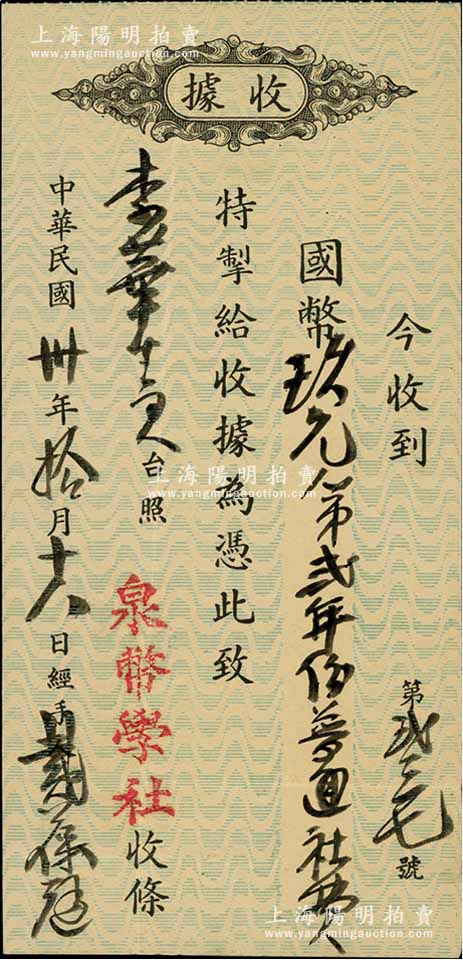 上海陽明拍賣
www.yangmingauction.com
收據
今收到
第弍二七號
國幣玖元 第弍年份普通社費
特掣給收據為憑此致
李 先生 台照
泉幣學社收條
中華民國卅年拾月十六日經手戴葆庭
上海陽明拍賣
www.yangmingauction.com
上海陽明拍賣
www.yangmingauction.com